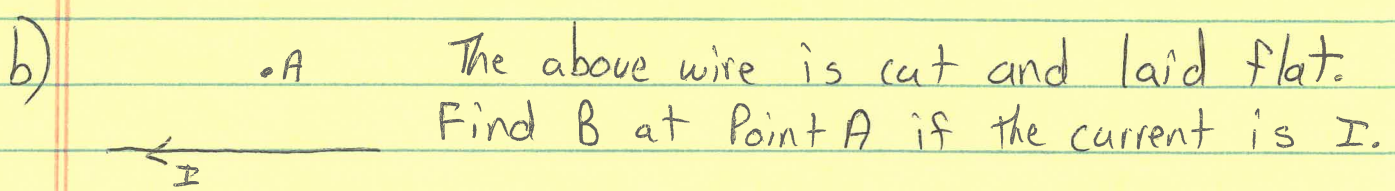 b) •A The above wire is cut and laid flat.
Find B at Point A if the current is I.
I